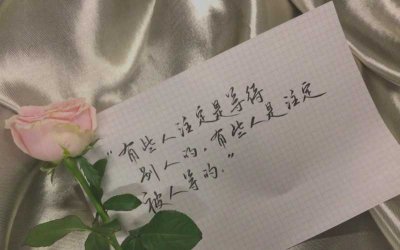 “有些人注定是等待
别人的，有些人是注定
被人等的.”